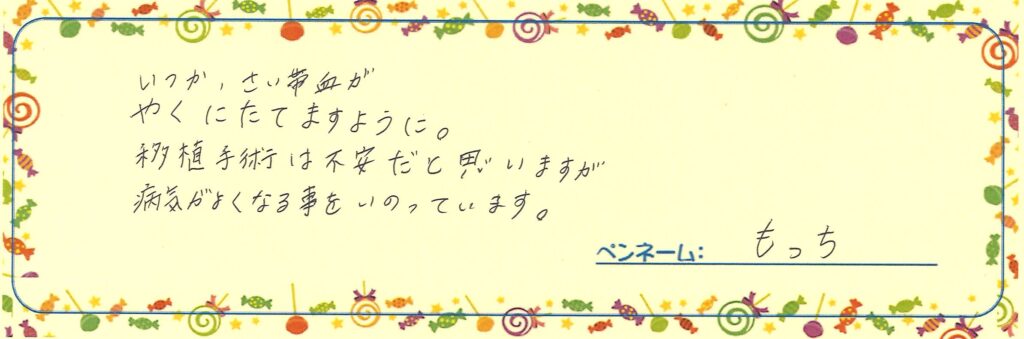 いつか、さい帯血が
やくにたてますように。
移植手術は不安だと思いますが
病気がよくなる事をいのっています。
ペンネーム: もっち